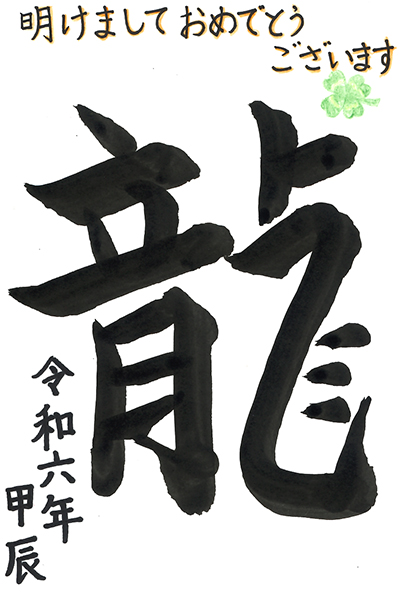 明けましておめでとう
ございます
龍
令和六年
甲辰